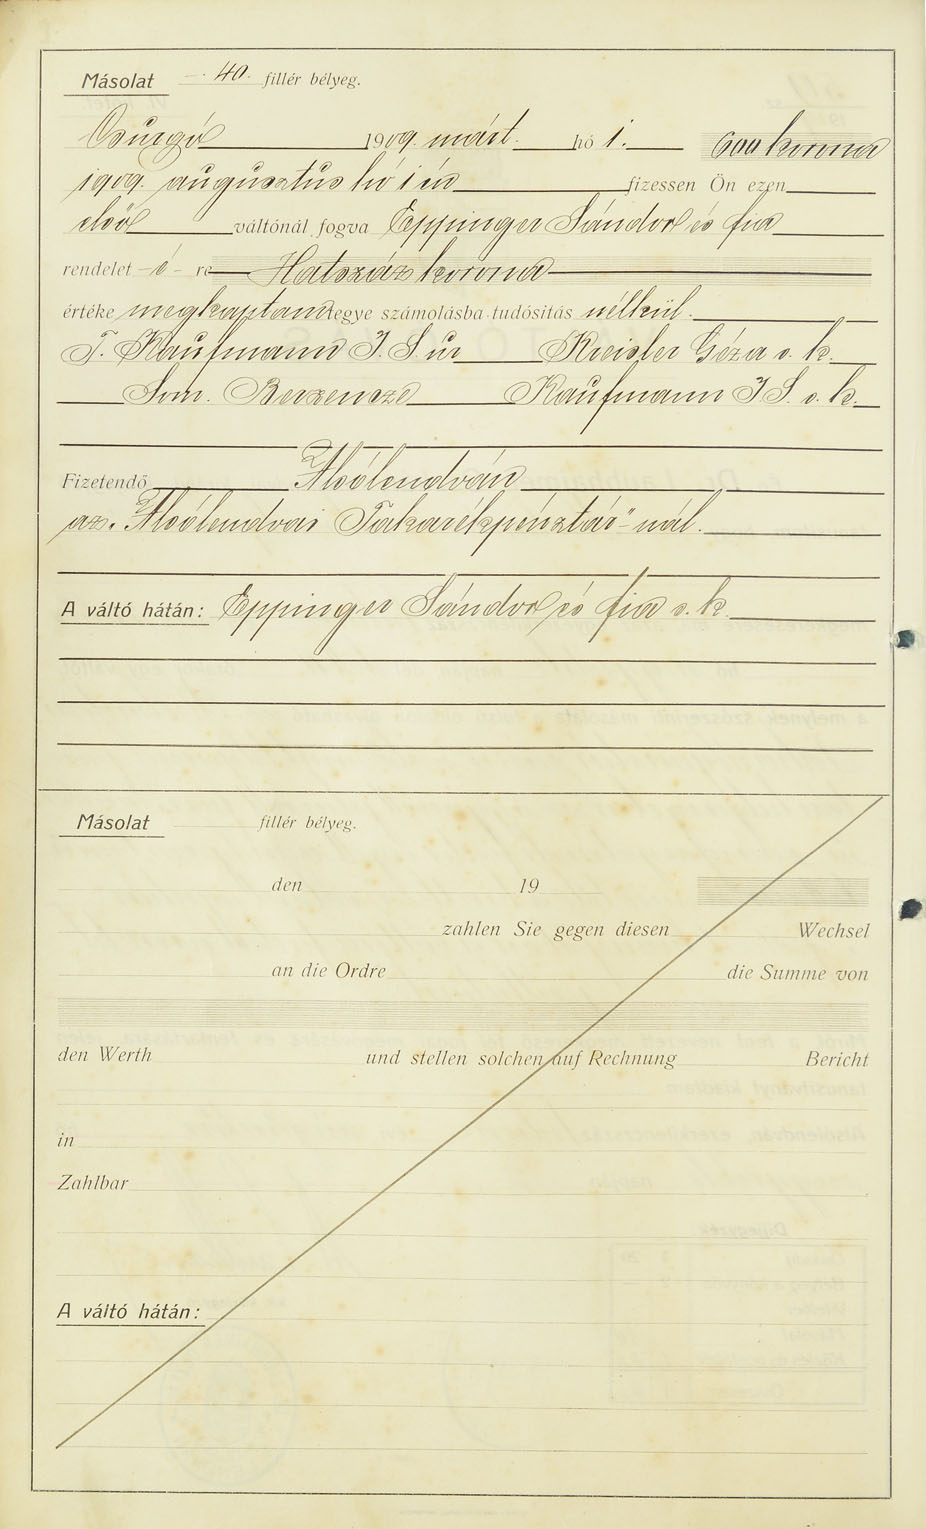 Másolat - 40. fillér bélyeg.
Csurgó 1909. márt. hó 1. 600 korona
1909. augusztus hó 1 én fizessen Ön ezen
első váltónál fogva Eppinger Sándor és fia
rendelet -é- re Hatszáz korona
értéke megkaptam tegye számolásba tudósítás nélkül.
T. Kaufmann I. S. úr Kreisler Géza s. k.
Som. Berzencze Kaufmann I. S. s. k.
Fizetendő Alsólendván
az „Alsólendvai Takarékpénztár"nál.
A váltó hátán: Eppinger Sándor és fia s. k.
Másolat fillér bélyeg.
den 19
zahlen Sie gegen diesen Wechsel
an die Ordre die Summe von
den Werth und stellen solchen auf Rechnung Bericht
in
Zahlbar
A váltó hátán: